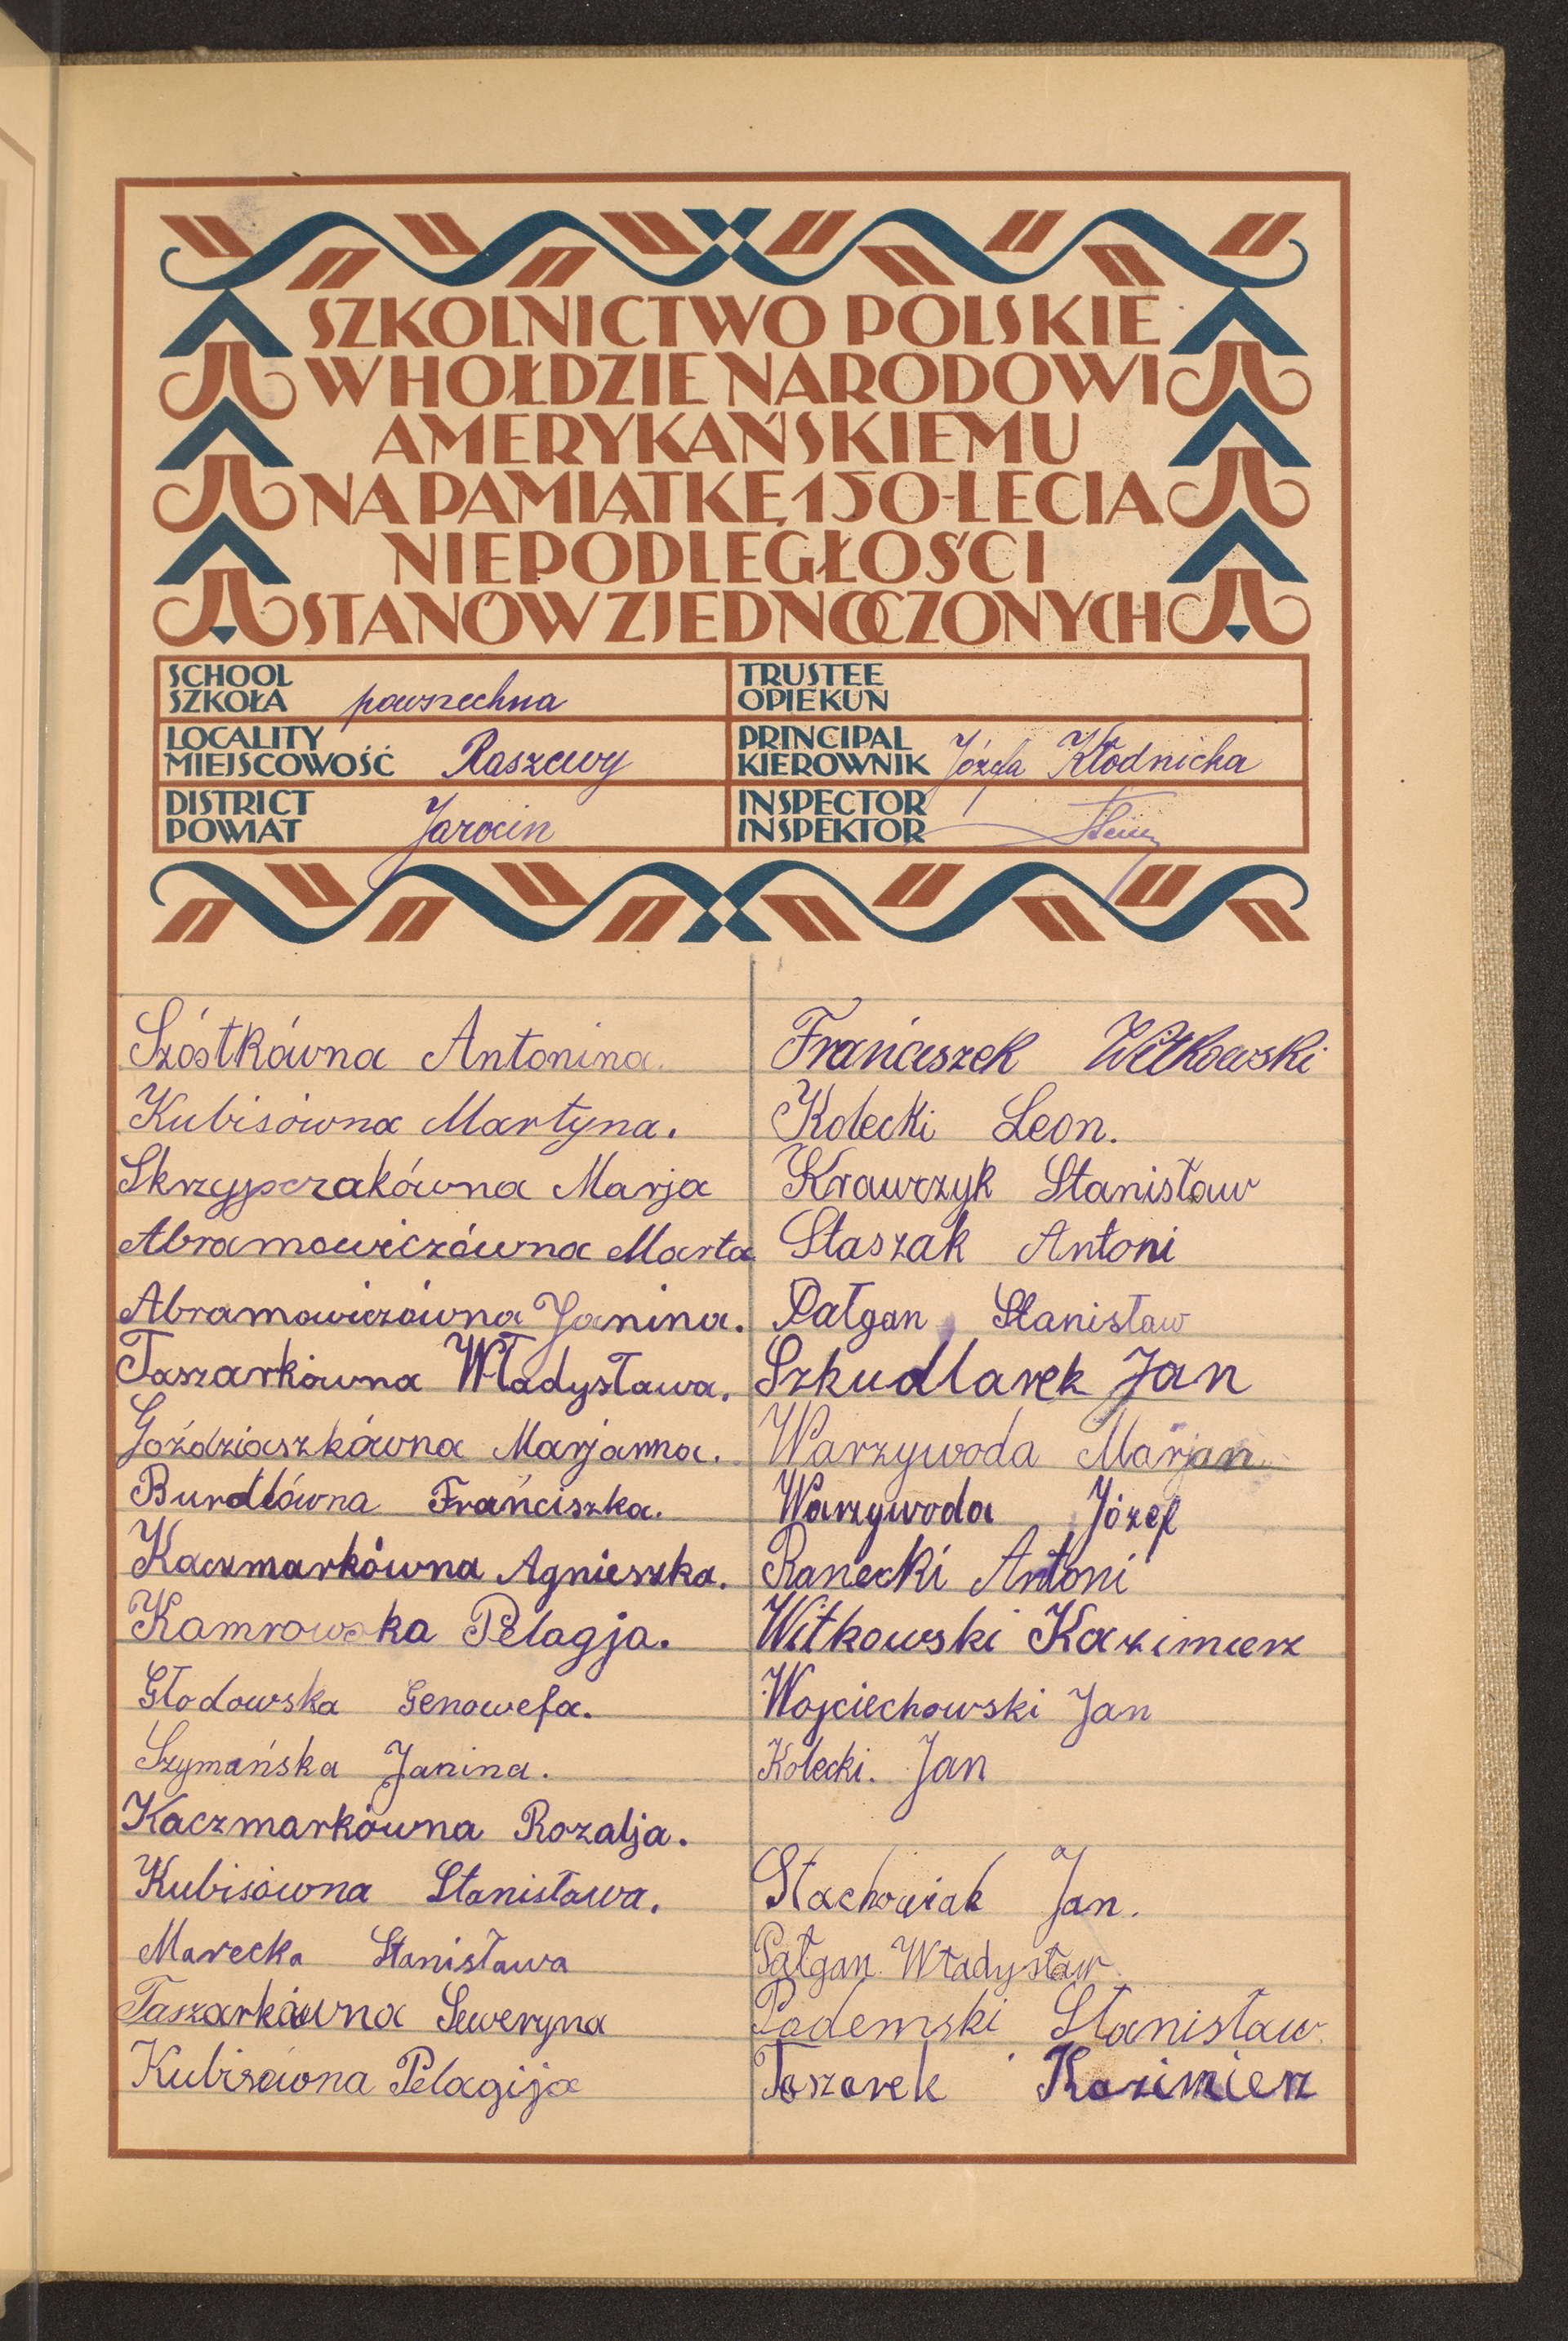 SZKOLNICTWO POLSKIE
W HOŁDZIE NARODOWI
AMERYKAŃSKIEMU
NA PAMIĄTKĘ 150-LECIA
NIEPODLEGŁOŚCI
STANÓW ZJEDNOCZONYCH
SCHOOL
SZKOŁA powszechna
TRUSTEE
OPIEKUN
LOCALITY
MIEJSCOWOŚĆ Raszewy
PRINCIPAL
KIEROWNIK Józefa Kłodnicka
DISTRICT
POWIAT Jarocin
INSPECTOR
INSPEKTOR
Szóstkówna Antonina.
Kubisówna Martyna.
Skrzypczakówna Marja
Abramowiczówna Marta
Abramowiczówna Janina.
Taszarkówna Władysława.
Goździaszkówna Marjanna.
Burdlówna Frańciszka.
Kaczmarkówna Agnieszka.
Kamrowska Pelagja.
Głodowska Genowefa.
Szymańska Janina.
Kaczmarkówna Rozalja.
Kubisówna Stanisława.
Marecka Stanisława
Taszarkówna Seweryna
Kubisówna Pelagija
Frańciszek Witkowski
Kolecki Leon.
Krawczyk Stanisław
Staszak Antoni
Pałgan Stanisław
Szkudlarek Jan
Warzywoda Marjan
Warzywoda Józef
Ranecki Antoni
Witkowski Kazimierz
Wojciechowski Jan
Kolecki. Jan
Stachowiak Jan.
Pałgan Władysław
Pademski Stanisław
Taszarek Kazimierz